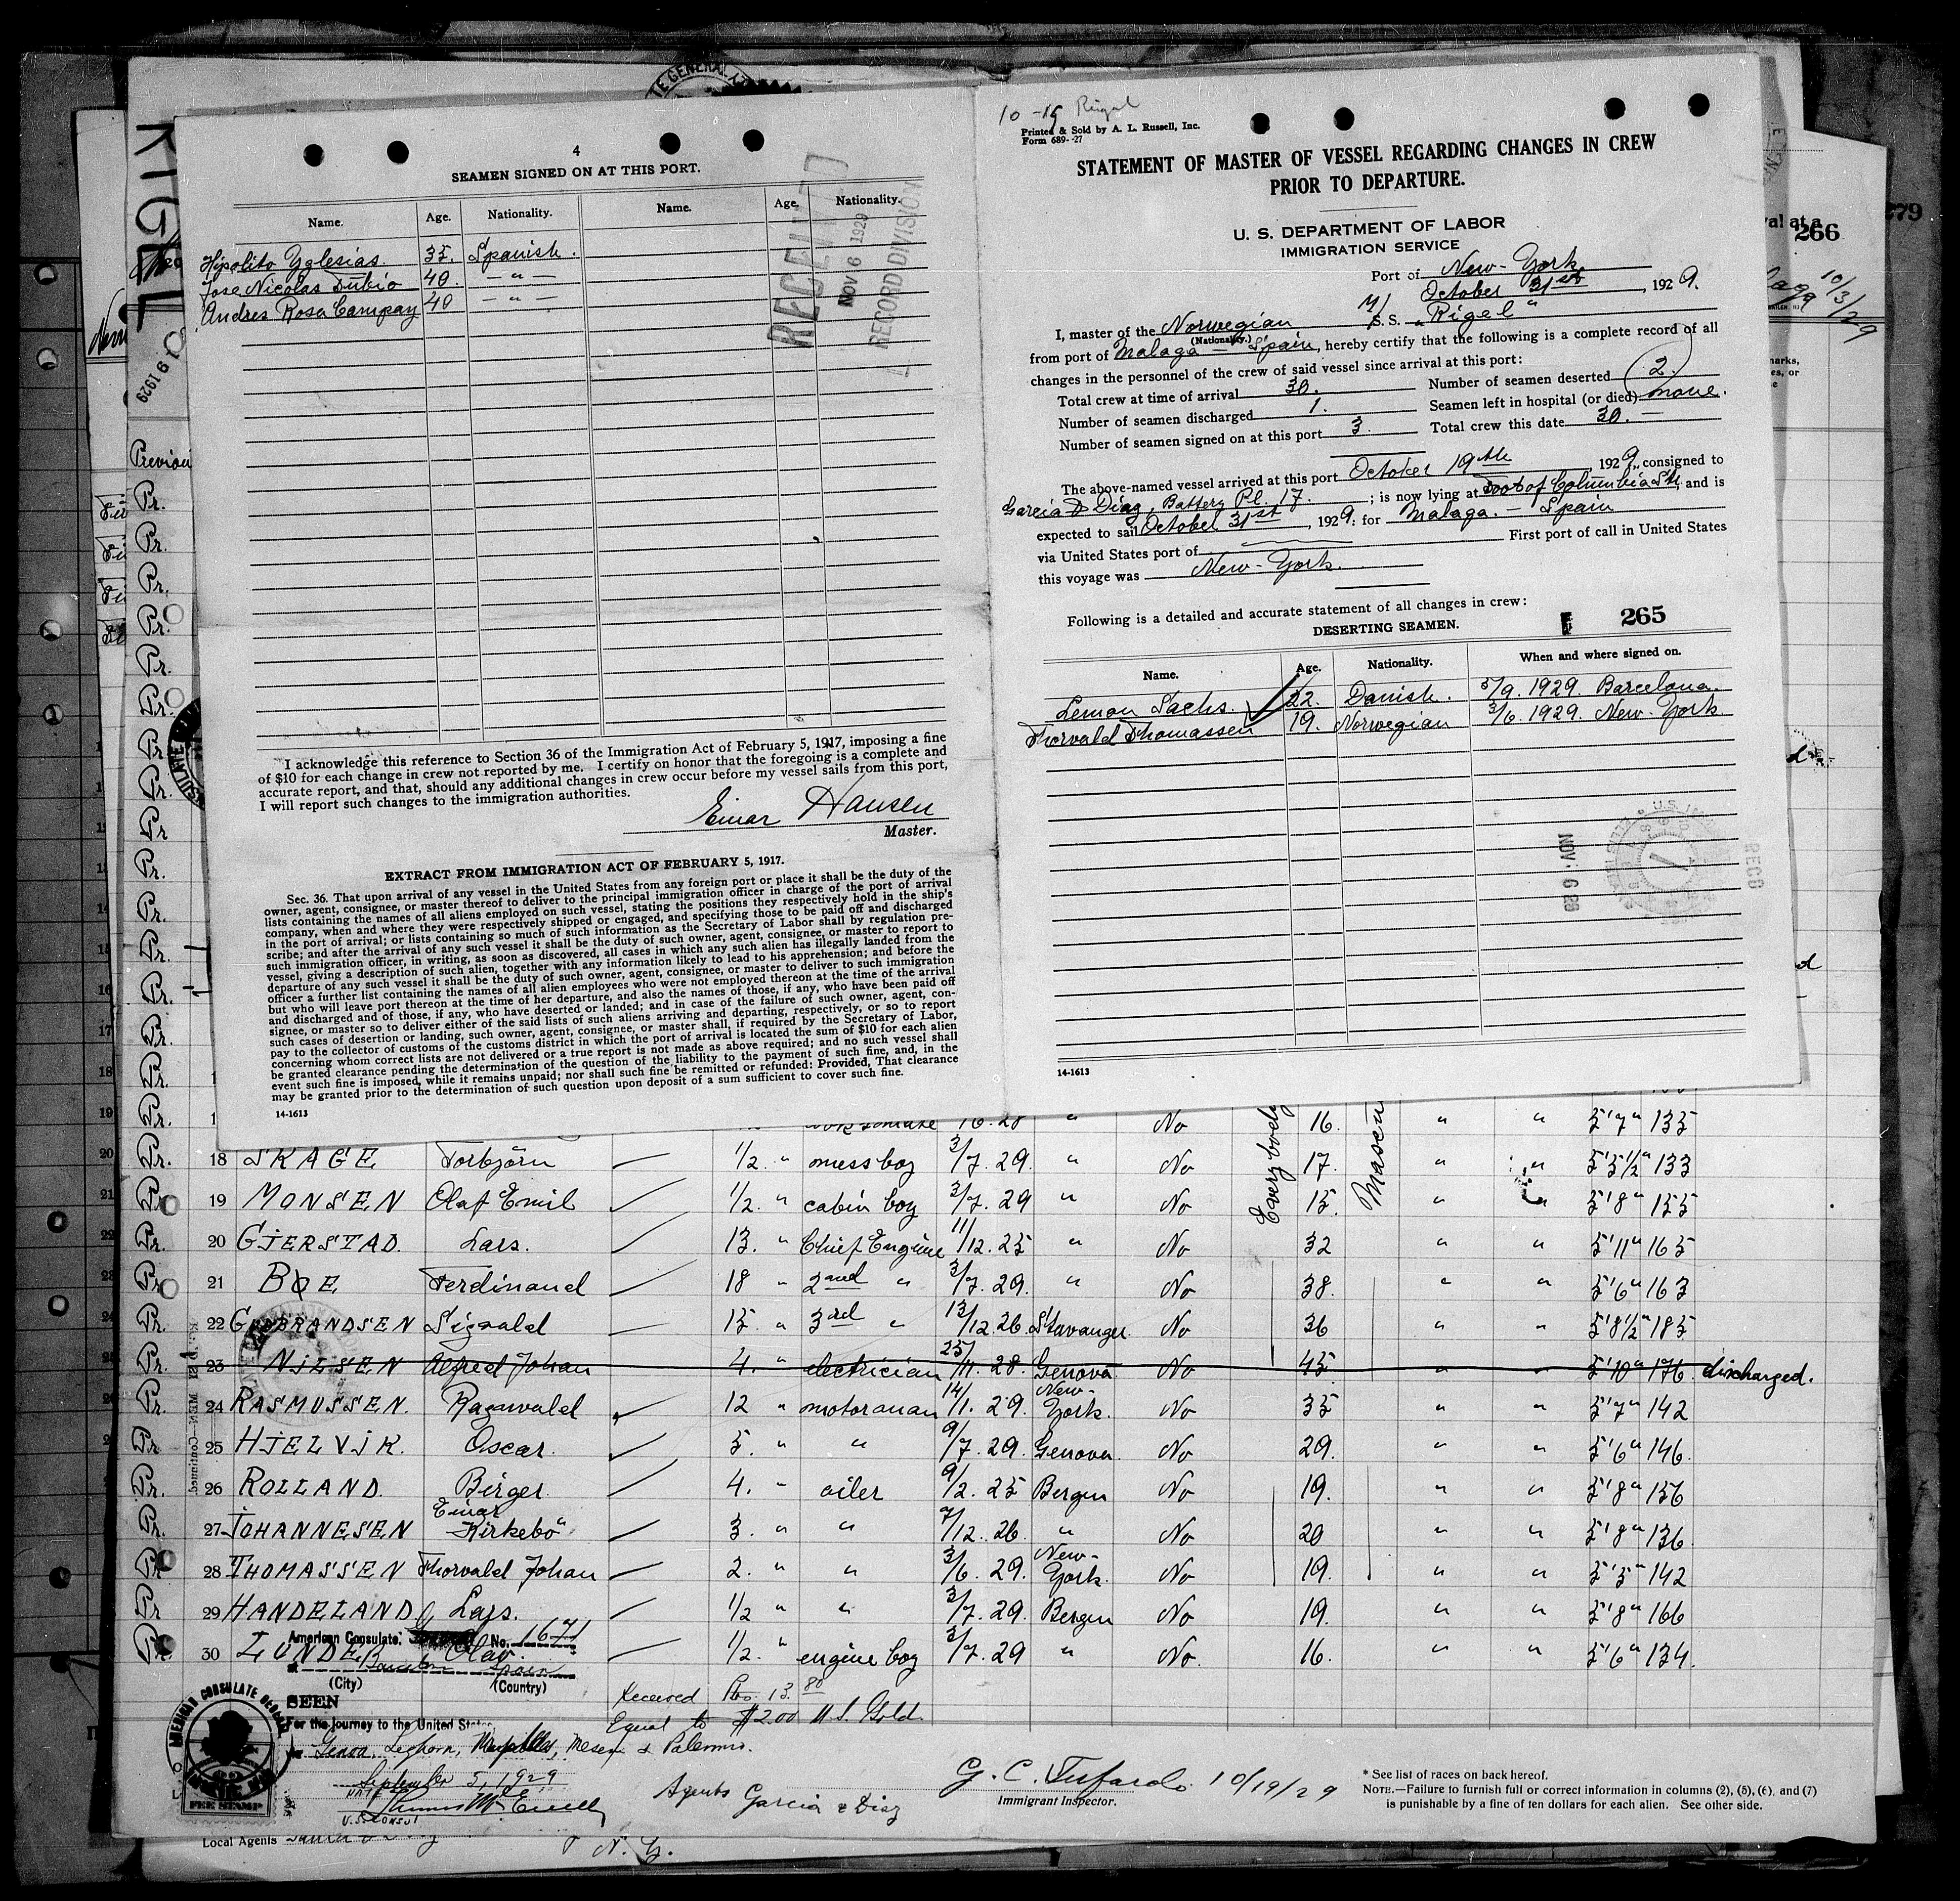 4
SEAMEN SIGNED ON AT THIS PORT.
Name. Age. Nationality. Name. Age. Nationality.
Hipolito Yglesias. 35. Spanish.
Jose Nicolas Dubio 40. — " —
Andres Rosa Campay 40 — " —
RECEIVED
NOV 6 1929
RECORD DIVISION
I acknowledge this reference to Section 36 of the Immigration Act of February 5, 1917, imposing a fine
of $10 for each change in crew not reported by me. I certify on honor that the foregoing is a complete and
accurate report, and that, should any additional changes in crew occur before my vessel sails from this port,
I will report such changes to the immigration authorities.
Einar Hansen
Master.
EXTRACT FROM IMMIGRATION ACT OF FEBRUARY 5, 1917.
Sec. 36. That upon arrival of any vessel in the United States from any foreign port or place it shall be the duty of the
owner, agent, consignee, or master thereof to deliver to the principal immigration officer in charge of the port of arrival
lists containing the names of all aliens employed on such vessel, stating the positions they respectively hold in the ship's
company, when and where they were respectively shipped or engaged, and specifying those to be paid off and discharged
in the port of arrival; or lists containing so much of such information as the Secretary of Labor shall by regulation pre-
scribe; and after the arrival of any such vessel it shall be the duty of such owner, agent, consignee, or master to report to
such immigration officer, in writing, as soon as discovered, all cases in which any such alien has illegally landed from the
vessel, giving a description of such alien, together with any information likely to lead to his apprehension; and before the
departure of any such vessel it shall be the duty of such owner, agent, consignee, or master to deliver to such immigration
officer a further list containing the names of all alien employees who were not employed thereon at the time of the arrival
but who will leave port thereon at the time of her departure, and also the names of those, if any, who have been paid off
and discharged and of those, if any, who have deserted or landed; and in case of the failure of such owner, agent, con-
signee, or master so to deliver either of the said lists of such aliens arriving and departing, respectively, or so to report
such cases of desertion or landing, such owner, agent, consignee, or master shall, if required by the Secretary of Labor,
pay to the collector of customs of the customs district in which the port of arrival is located the sum of $10 for each alien
concerning whom correct lists are not delivered or a true report is not made as above required; and no such vessel shall
be granted clearance pending the determination of the question of the liability to the payment of such fine, and, in the
event such fine is imposed, while it remains unpaid; nor shall such fine be remitted or refunded: Provided, That clearance
may be granted prior to the determination of such question upon deposit of a sum sufficient to cover such fine.
14-1613
10-19 Rigel
Printed & Sold by A. L. Russell, Inc.
Form 689--27
STATEMENT OF MASTER OF VESSEL REGARDING CHANGES IN CREW
PRIOR TO DEPARTURE.
U. S. DEPARTMENT OF LABOR
IMMIGRATION SERVICE
Port of New-York
October 31st, 1929.
I, master of the Norwegian M/S.S. "Rigel"
(Nationality.)
from port of Malaga — Spain, hereby certify that the following is a complete record of all
changes in the personnel of the crew of said vessel since arrival at this port:
Total crew at time of arrival 30. Number of seamen deserted 2.
Number of seamen discharged 1. Seamen left in hospital (or died) none.
Number of seamen signed on at this port 3. Total crew this date 30. —
The above-named vessel arrived at this port October 19th, 1929, consigned to
Garcia & Diaz, Battery Pl. 17. ; is now lying at Foot of Columbia St. and is
expected to sail October 31st, 1929: for Malaga. — Spain
via United States port of First port of call in United States
this voyage was New-York.
Following is a detailed and accurate statement of all changes in crew:
265
DESERTING SEAMEN.
Name. Age. Nationality. When and where signed on.
Lemon Sachs. 22. Danish. 5/9. 1929. Barcelona.
Thorvald Thomassen 19. Norwegian 3/6. 1929. New-York.
NOV 6 29
RECD
14-1613
RIGEL
266
279
Malaga 10/3/29
19 16.28 " No 16. " " 5'7" 135
Everybody
18 SKAGE Torbjörn 1/2. " messboy 3/7. 29. " No 17. " " 5'5 1/2" 133
19 MONSEN Olaf Emil 1/2. " cabin boy 3/7. 29 " No 15. " " 5'8" 155
20 GJERSTAD. Lars. 13. " Chief Engine 11/12. 25 " No 32 " " 5'11" 165
21 BØE Ferdinand 18 " 2nd " 3/7. 29. " No 38. " " 5'6" 163
22 GUDBRANDSEN Sigvald 15. " 3rd " 13/12. 26. Stavanger. No 36 " " 5'8 1/2" 185
23 NILSEN Alfred Johan 4. " electrician 25/11. 28. Genova No 45 " " 5'10" 176. discharged.
24 RASMUSSEN. Ragnvald 12 " motorman 14/1. 29. New-York. No 35 " " 5'7" 142
25 HJELVIK. Oscar. 5. " " 9/7. 29. Genova. No 29. " " 5'6" 146.
26 ROLLAND. Birger. 4. " oiler 9/2. 25 Bergen No 19. " " 5'8" 156
27 JOHANNESEN Einar Kirkebö 3. " " 7/12. 26. " No 20 " " 5'8" 136.
28 THOMASSEN Thorvald Johan 2. " " 3/6. 29. New-York. No 19. " " 5'5" 142
29 HANDELAND Lars. 1/2 " " 3/7. 29. Bergen No 19. " " 5'8" 166
30 LUNDE Olav. 1/2. " engine boy 3/7. 29 " No. 16. " " 5'6" 134.
American Consulate. No. 1671
Spain
(City) (Country)
SEEN
For the journey to the United States
Genoa, Leghorn, & Palermo.
September 5, 1929
U.S. Consul
AMERICAN CONSULATE GENERAL
FEE STAMP
Received Ptas. 13.80
Equal to $2.00 U.S. Gold.
Agents Garcia & Diaz
N. Y.
Local Agents
G. C. Tufarolo 10/19/29
Immigrant Inspector.
* See list of races on back hereof.
NOTE.—Failure to furnish full or correct information in columns (2), (5), (6), and (7)
is punishable by a fine of ten dollars for each alien. See other side.